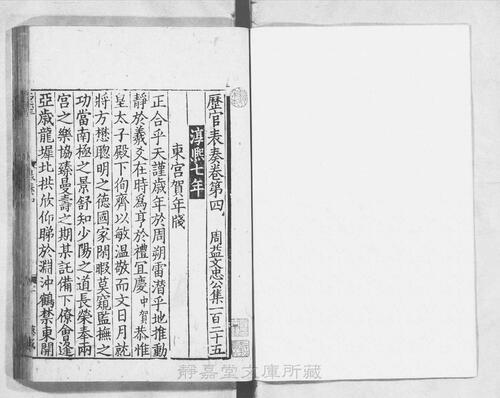 歷官表奏卷第四　周益文忠公集一百二十五
淳熙七年
東宮賀年牋
正合乎天謹歲年於周朔雷潛乎地推動
靜於羲爻在時爲亨於禮宜慶中賀恭惟
皇太子殿下徇齊以敏溫敬而文日月就
將方懋聰明之德國家閒暇莫窺監撫之
功當南極之景舒知少陽之道長榮奉兩
宮之樂協臻曼壽之期某託備下僚會逢
亞歲龍墀北拱欣仰睇於淵沖鶴禁東開
靜嘉堂文庫所藏